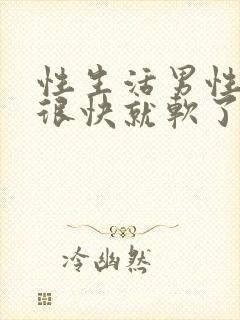 性生活男性
很快就軟了
冷幽然